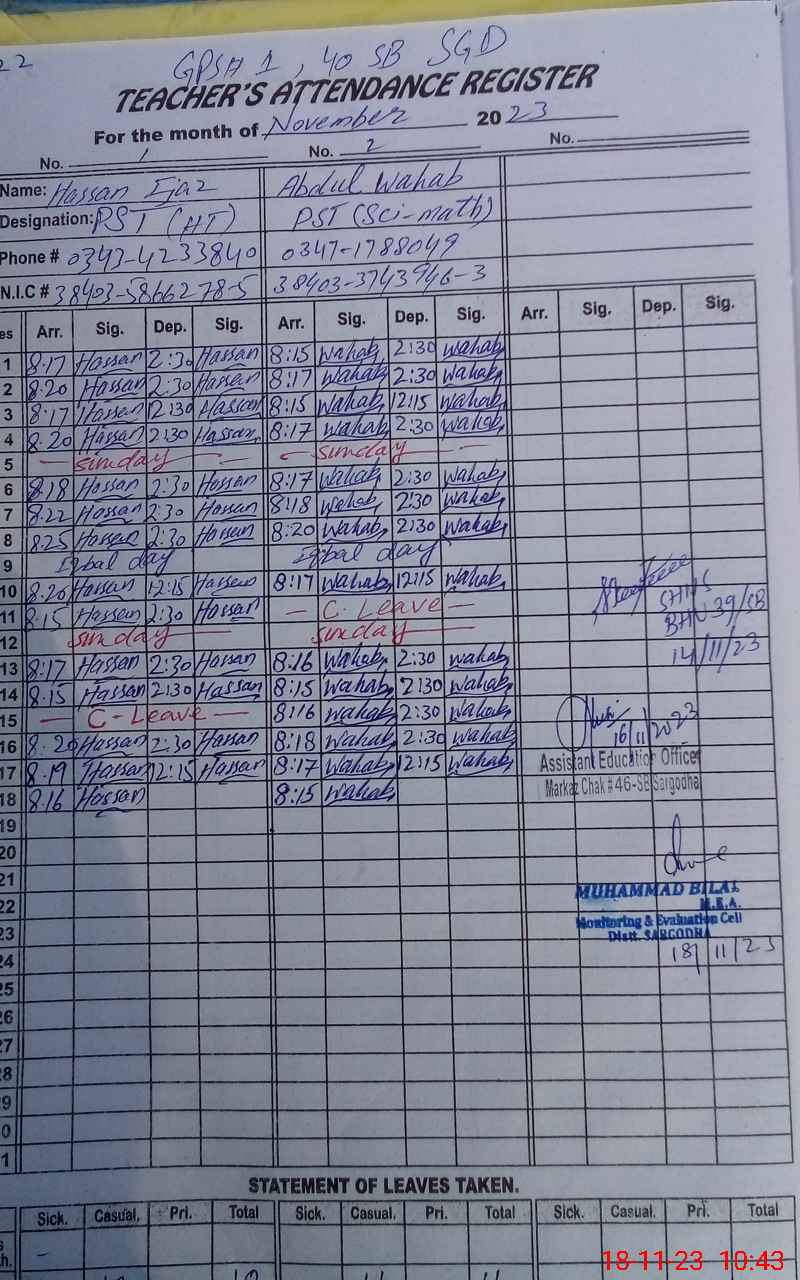 22
GPSH 1, 40 SB SGD
TEACHER'S ATTENDANCE REGISTER
For the month of November 2023
No. 1 No. 2 No.
Name: Hassan Ijaz Abdul Wahab
Designation: PST (HT) PST (Sci-math)
Phone # 0343-4233840 0347-1788049
N.I.C # 38403-5866278-5 38403-3743946-3
es Arr. Sig. Dep. Sig. Arr. Sig. Dep. Sig. Arr. Sig. Dep. Sig.
1 8:17 Hassan 2:30 Hassan 8:15 Wahab 2:30 Wahab
2 8:20 Hassan 2:30 Hassan 8:17 Wahab 2:30 Wahab
3 8:17 Hassan 12:30 Hassan 8:15 Wahab 12:15 Wahab
4 8:20 Hassan 2:30 Hassan 8:17 Wahab 2:30 Wahab
5 — Sunday — — Sunday —
6 8:18 Hassan 2:30 Hassan 8:17 Wahab 2:30 Wahab
7 8:22 Hassan 2:30 Hassan 8:18 Wahab 2:30 Wahab
8 8:25 Hassan 2:30 Hassan 8:20 Wahab 2:30 Wahab
9 Iqbal day Iqbal day
10 8:20 Hassan 12:15 Hassan 8:17 Wahab 12:15 Wahab
11 8:15 Hassan 2:30 Hassan — C. Leave —
12 Sunday — Sunday —
13 8:17 Hassan 2:30 Hassan 8:16 Wahab 2:30 Wahab
14 8:15 Hassan 2:30 Hassan 8:15 Wahab 2:30 Wahab
15 — C-Leave — 8:16 Wahab 2:30 Wahab
16 8:20 Hassan 2:30 Hassan 8:18 Wahab 2:30 Wahab
17 8:19 Hassan 12:15 Hassan 8:17 Wahab 12:15 Wahab
18 8:16 Hassan 8:15 Wahab
19
20
21
22
23
24
25
26
27
28
9
0
1
39/SB
14/11/23
16/11/2023
Assistant Education Officer
Markaz Chak # 46-SB Sargodha
MUHAMMAD BILAL
M.E.A.
Monitoring & Evaluation Cell
Distt. SARGODHA
18/11/23
STATEMENT OF LEAVES TAKEN.
Sick. Casual. Pri. Total Sick. Casual. Pri. Total Sick. Casual. Pri. Total
18-11-23 10:43